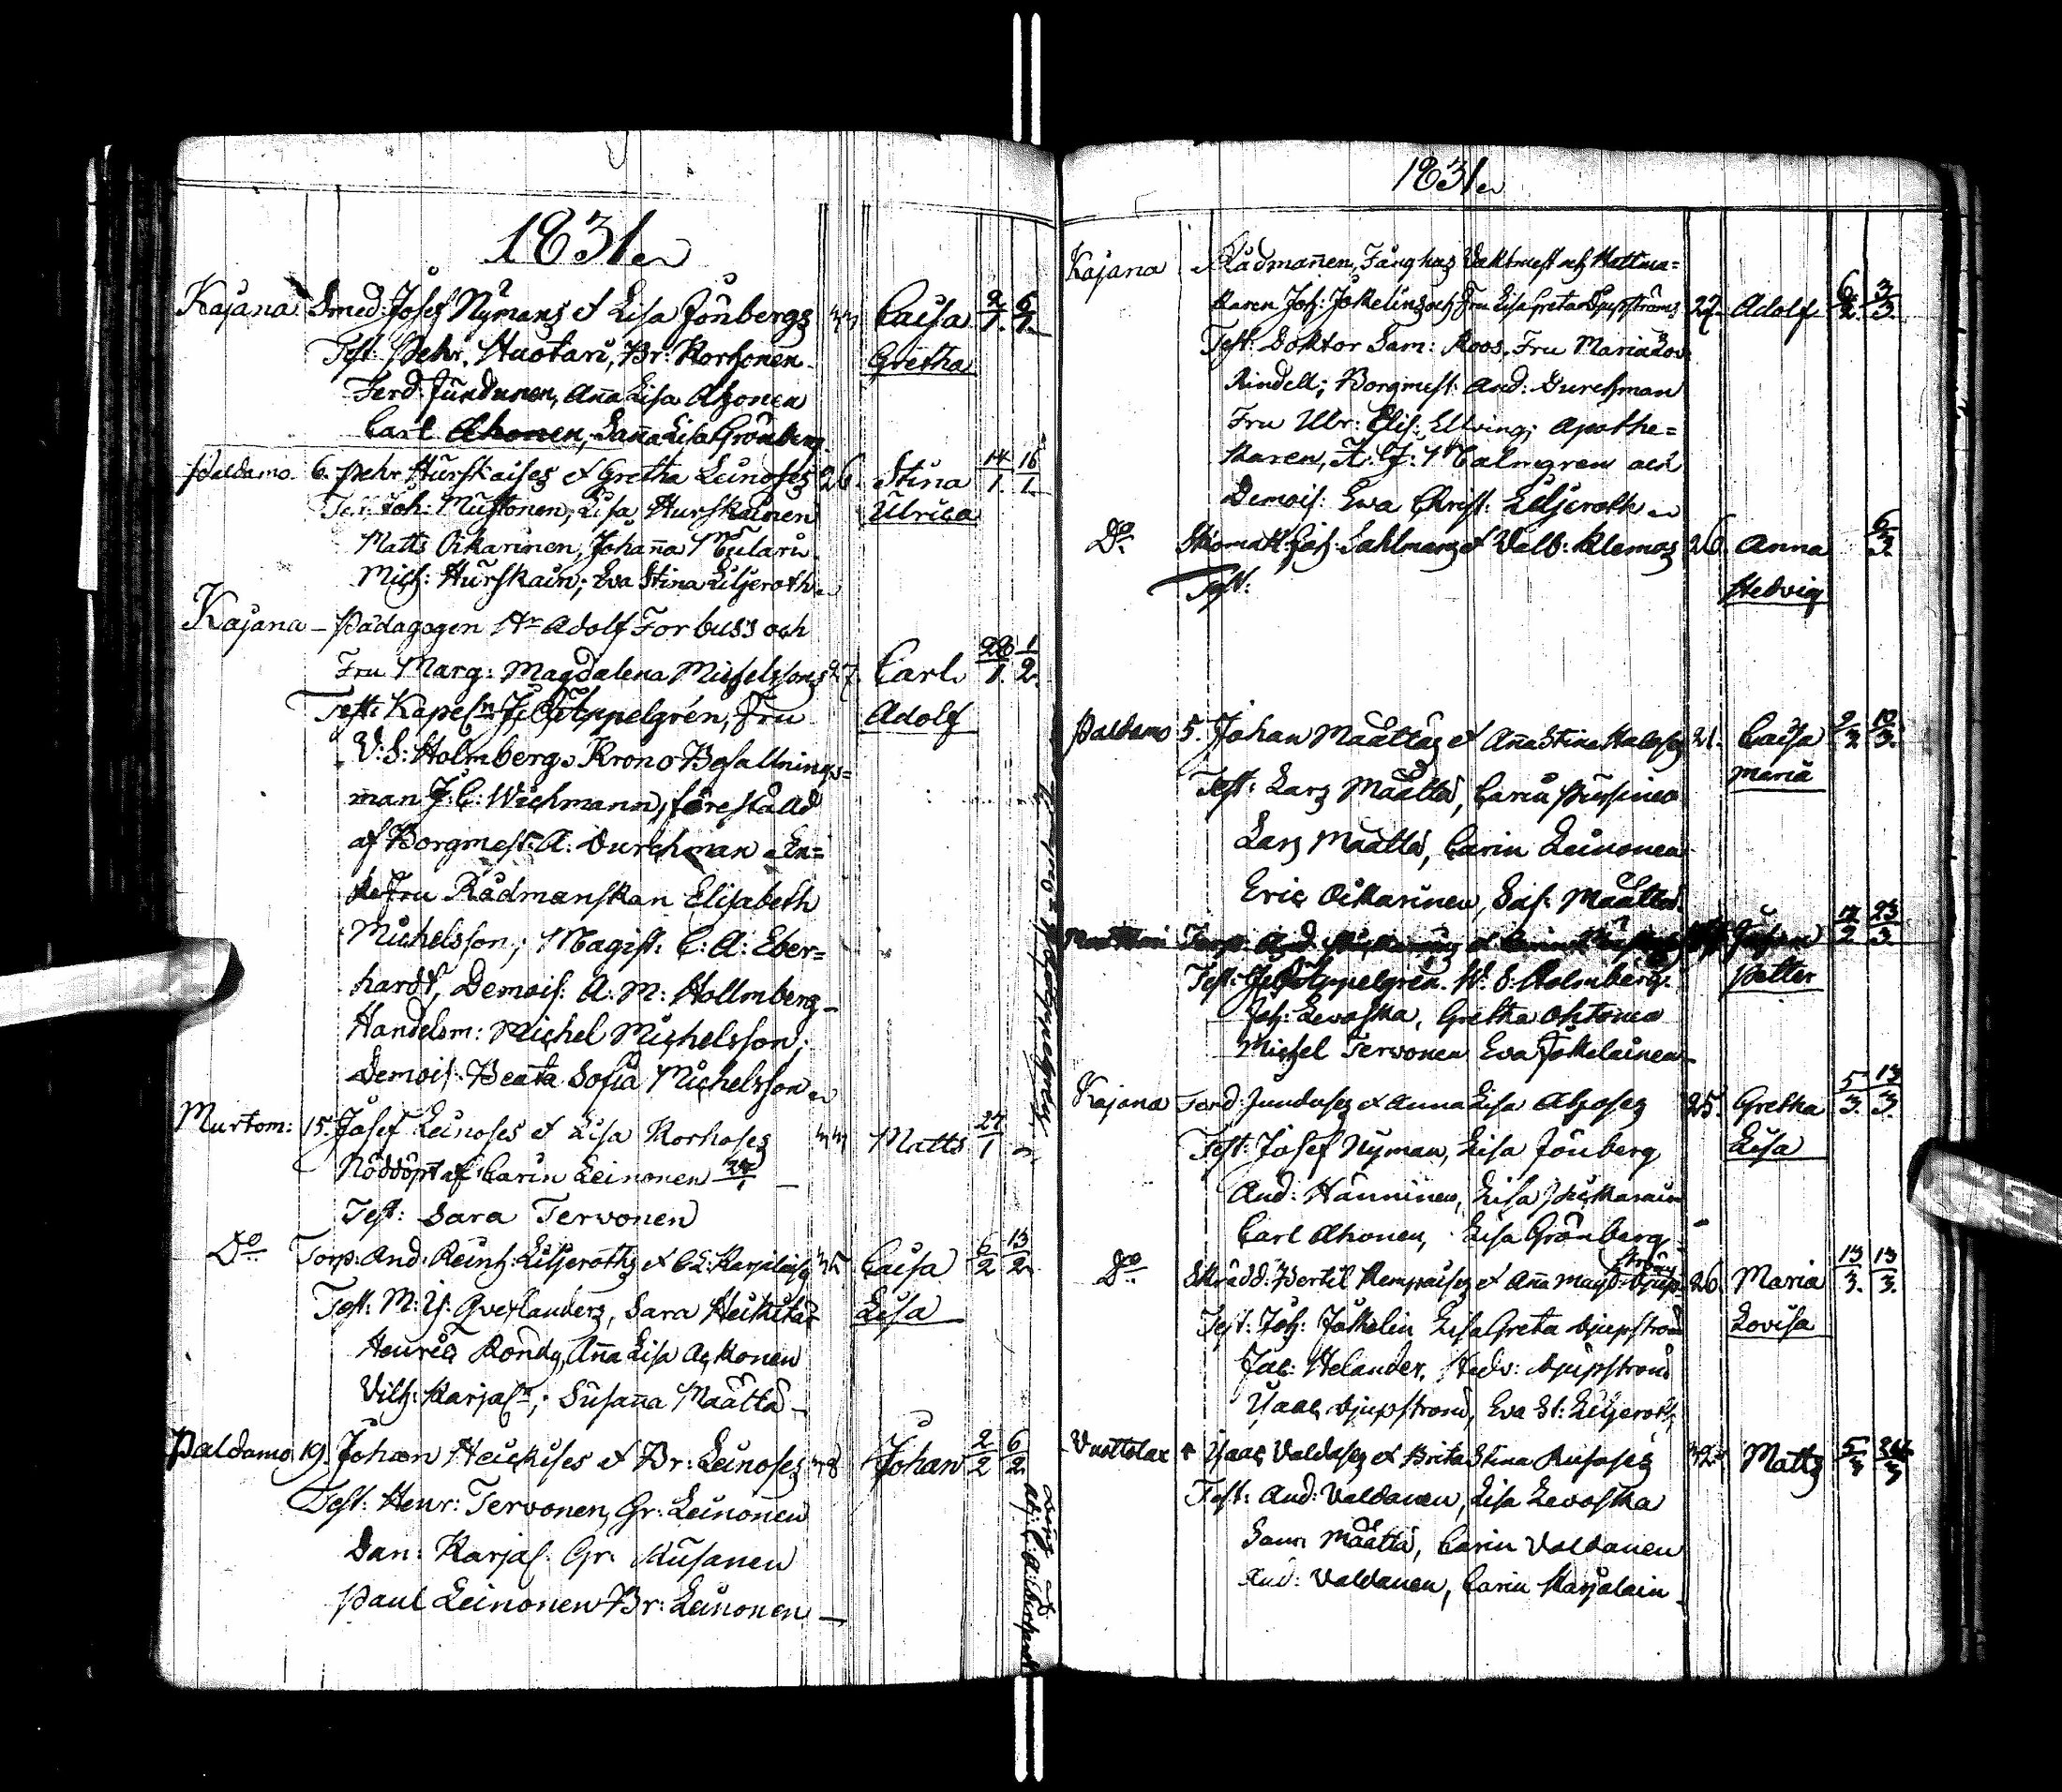 1831
Kajana Smed: Josef Nymans et Lisa Jönbergs 33 Caisa 2/1. 6/1.
Test: Pehr Huotari, Br: Korhonen Gretha
Ferd: Jundunen, Aña Lisa Ahonen
Carl Ahonen, Saña Lisa Grönberg
Paldamo. 6. Pehr Hurskaises et Gretha Leinoses 26. Stina 14/1. 16/1.
Test: Joh: Mustonen, Lisa Hurskainen Ulrica
Matts Oikarinen, Johaña Mylari
Mich: Hurskain; Eva Stina Liljeroth
Kajana Pädagogen Hr Adolf Forbuss och
Fru Marg: Magdalena Michelssons 27. Carl 28/1. 1/2.
Test: Kapeln Appelgrén, Fru Adolf
V: S: Holmberg. Krono Befallnings=
man J: C: Wichmann, föreställd
af Borgmest: A: Durchman En=
ke Fru Rådmanskan Elisabeth
Michelsson; Magist: C: A: Eber=
hardt, Demois: A: M: Hollmberg
Handelsm: Michel Michelsson;
Demois: Beata Sofia Michelsson
Murtom: 15. Josef Leinoses et Lisa Korhoses 33 Matts 27/1
Nöddöpt af Carin Leinonen
Test: Sara Tervonen
Do Torp: And: Reinh: Liljeroths et C L: Karjalaises Caisa 6/2 13/2
Test: M: Qveflanders, Sara Heikkitar Lisa
Henric Aña Lisa
Vilh: Karjaln; Susaña Määttä
Paldamo 19. Johan Heickises et Br: Leinoses 38 Johan 2/2 6/2
Test: Henr: Tervonen, Gr: Leinonen
Dan: Karjal: Gr:
Paul Leinonen Br: Leinonen
1831
Kajana Rådmañen, Fånghus Vaktmest och
Joh: Jokelins och Fru Lisa Greta Djupströms 27. Adolf 6/2. 3/3.
Test: Doktor Sam: Roos. Fru Maria Lov:
Rindell; Borgmest: And: Durchman
Fru Ulr: Elis: Elfving; Apothe=
karen, A: J: Malmgren och
Demois: Ewa Christ: Liljeroth
Do Skomak: Joh: Sahlmans et Valb: Klemos 26. Anna 6/3.
Test: Hedvig
Paldamo 5. Johan Määttäs et Aña Stina 21. Caisa 9/2 12/3.
Test: Lars Määttä, Carin maria
Lars Määttä, Carin Leinonen
Eric Oikarinen, Määttä
Torp: And: Johan 12/2 23/3.
Test: Appelgrén. W. S. Holmberg. Petter
Joh: Levoska, Gretha Ohtonen
Michel Tervonen Eva Jokelainen
Kajana Ferd: Junduses et Anna Lisa Ahoses 25. Gretha 5/3. 13/3.
Test: Josef Nyman, Lisa Jönberg Lisa
And: Hänninen, Lisa
Carl Ahonen, Lisa Grönberg
Do Skrädd: Bertil Kempaises et Aña Magd: Djup ströms 26. Maria 13/3. 13/3.
Test: Joh: Jokelin Lisa Greta Djupström Lovisa
Jac: Helander, Hedv: Djupström
Isaac Djupström, Eva St: Liljeroth
Vuottolax Isaac Valdases et Brita Stina 32 Matts 5/3
Test: And: Valdanen, Lisa Levoska
Sam: Määttä, Carin Valdanen
And: Valdanen, Carin Karjalain